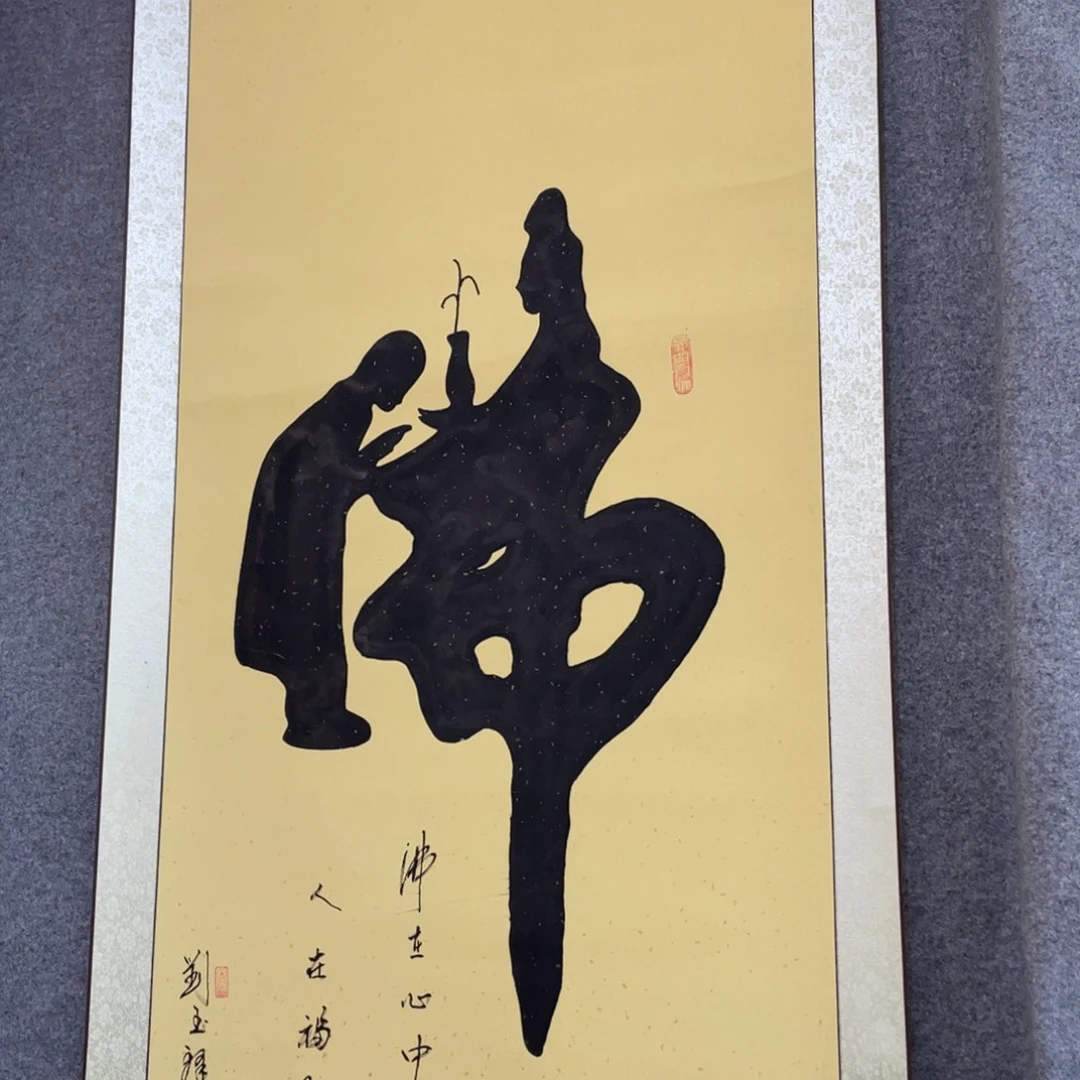 佛
佛在心中
人在福
劉玉